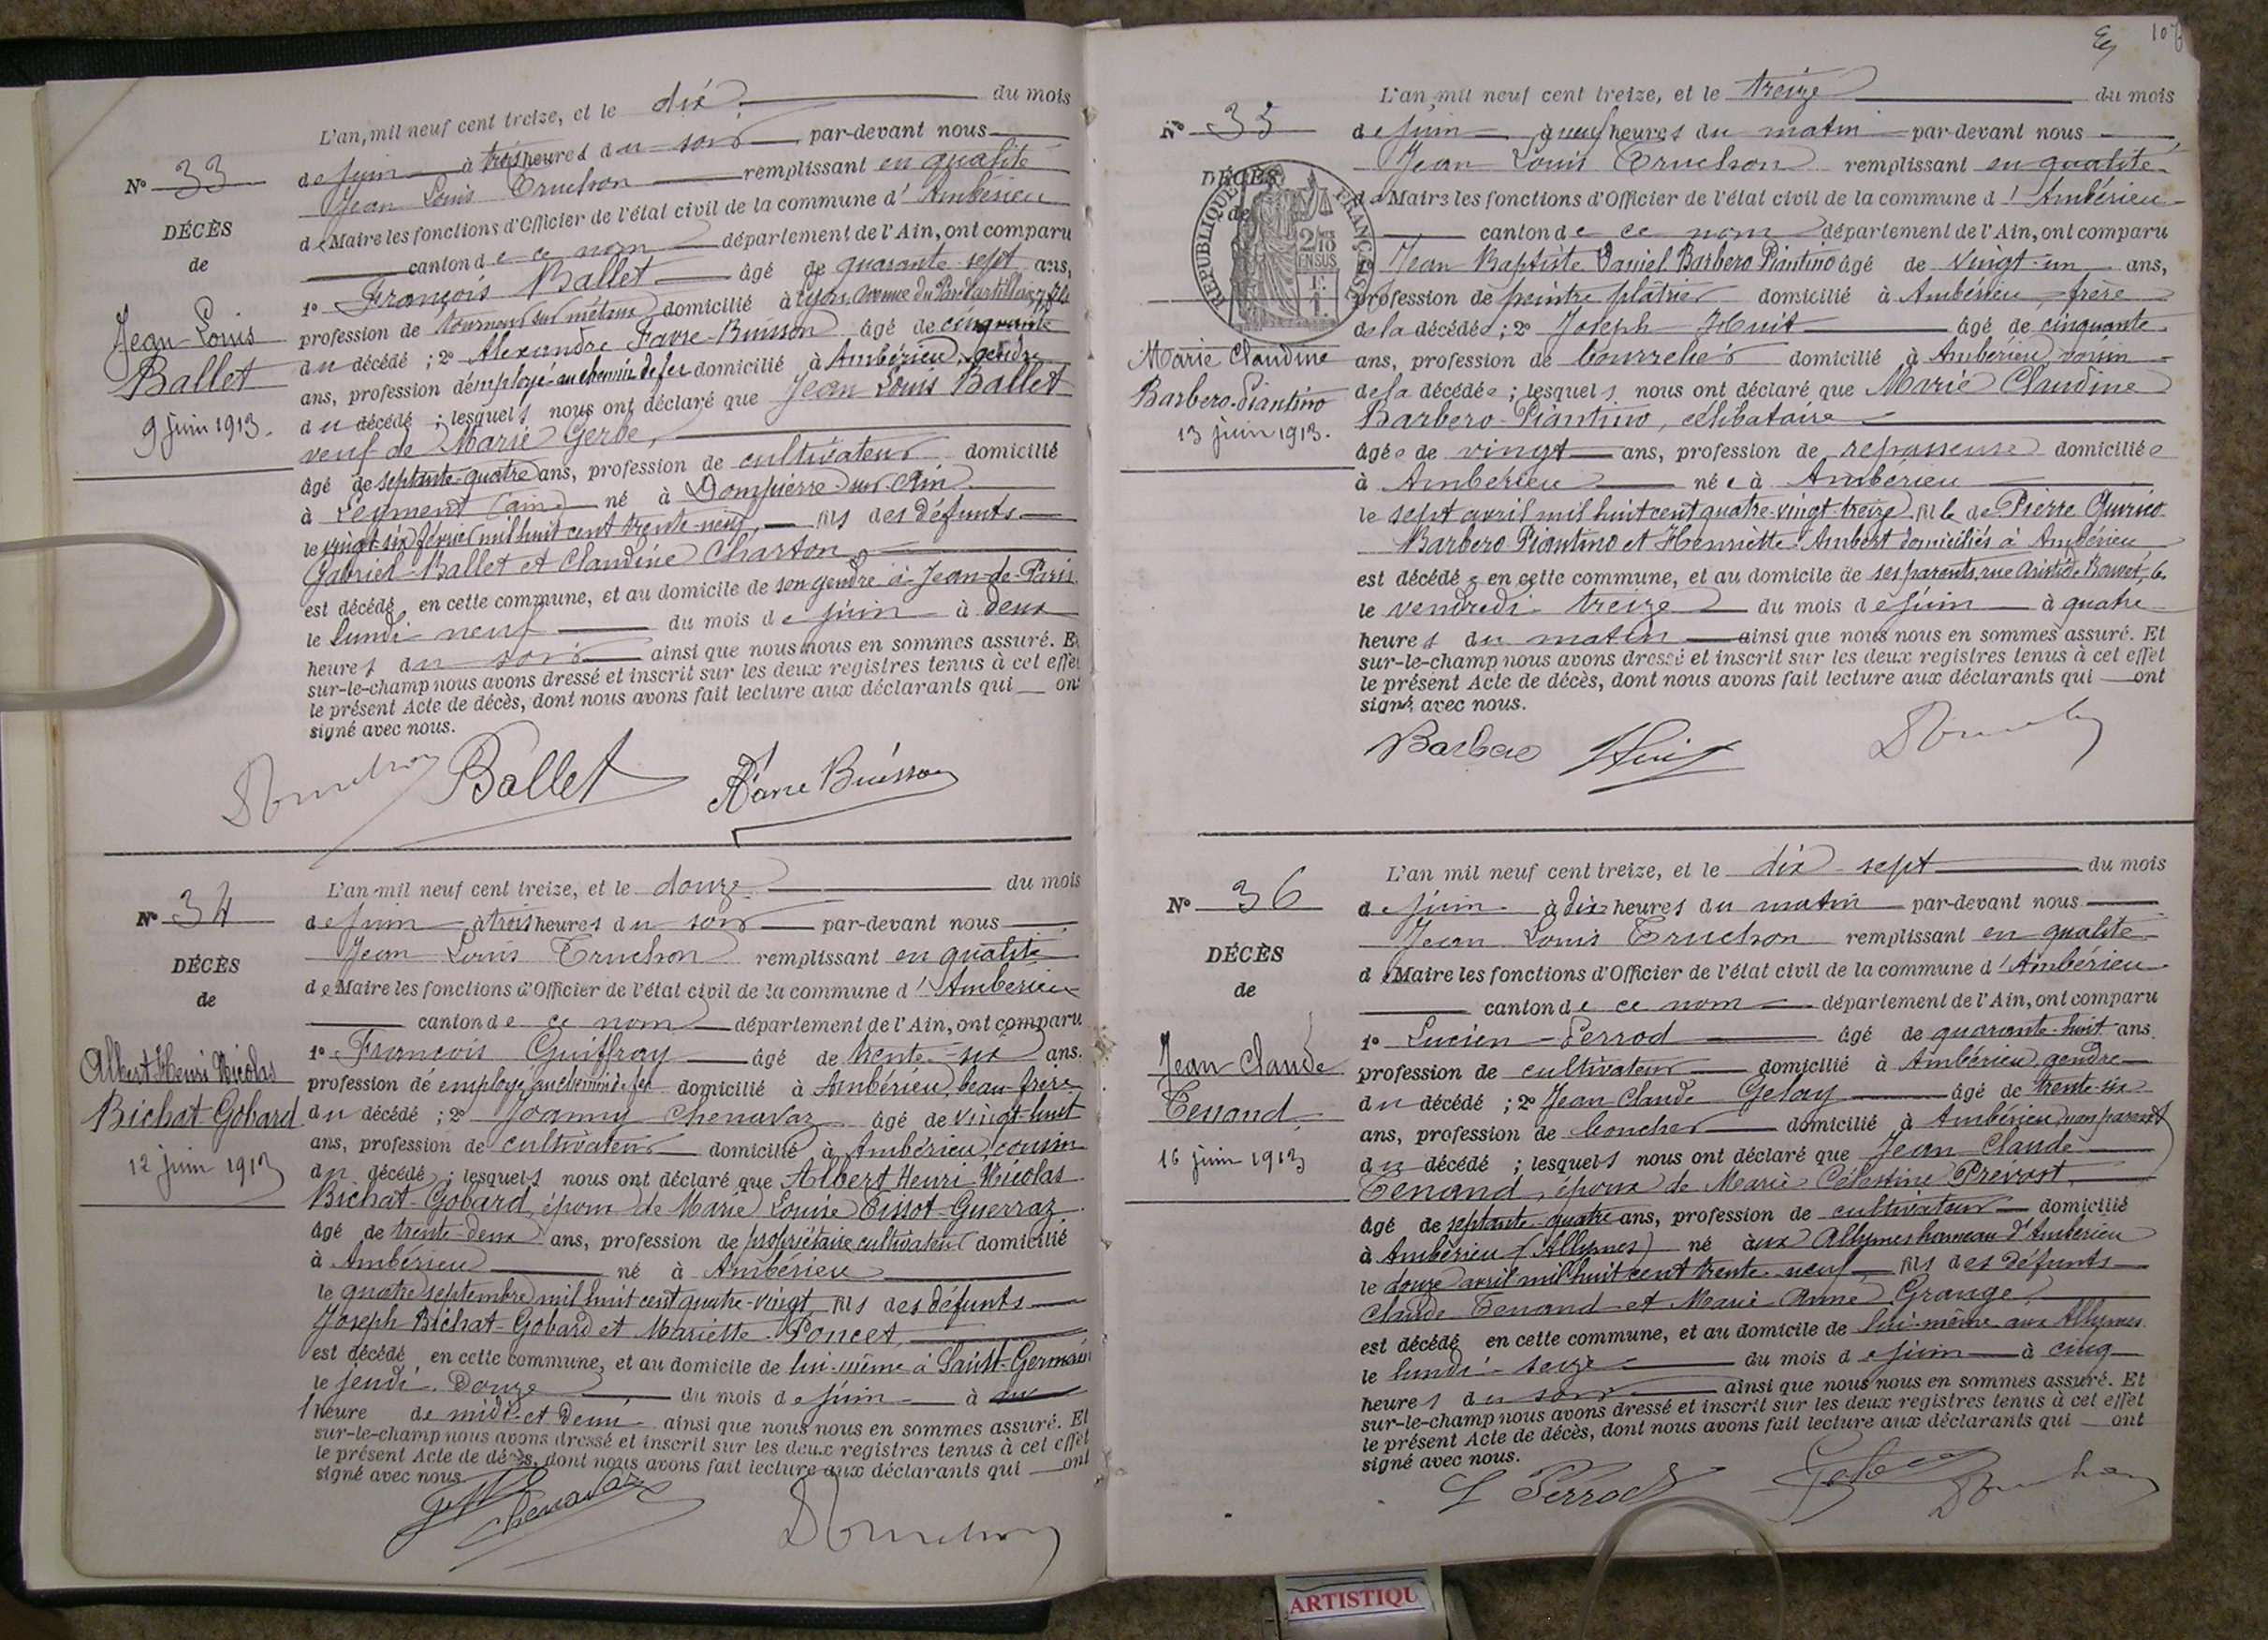 L'an mil neuf cent treize, et le dix du mois
de juin à trois heures du soir par-devant nous
Jean Louis Truchon remplissant en qualité
de Maire les fonctions d'Officier de l'état civil de la commune d'Ambérieu
canton de ce nom département de l'Ain, ont comparu
1º François Ballet âgé de quarante-sept ans,
profession de tourneur sur métaux domicilié à Lyon, avenue du Parc d'artillerie
du décédé ; 2º Alexandre Favre-Buisson âgé de cinquante
ans, profession d'employé au chemin de fer domicilié à Ambérieu, gendre
du décédé ; lesquels nous ont déclaré que Jean Louis Ballet
veuf de Marie Gerbe,
âgé de septante-quatre ans, profession de cultivateur domicilié
à Leyment (ain) né à Dompierre sur Ain
le vingt-six février mil huit cent trente-neuf, fils des défunts
Gabriel Ballet et Claudine Charton,
est décédé en cette commune, et au domicile de son gendre à Jean-de-Paris
le lundi neuf du mois de juin à deux
heures du soir ainsi que nous nous en sommes assuré. Et
sur-le-champ nous avons dressé et inscrit sur les deux registres tenus à cet effet
le présent Acte de décès, dont nous avons fait lecture aux déclarants qui ont
signé avec nous.
Nº 33
DÉCÈS
de
Jean-Louis
Ballet
9 juin 1913.
Truchon Ballet Favre Buisson
L'an mil neuf cent treize, et le douze du mois
de juin à trois heures du soir par-devant nous
Jean Louis Truchon remplissant en qualité
de Maire les fonctions d'Officier de l'état civil de la commune d'Ambérieu
canton de ce nom département de l'Ain, ont comparu
1º François Guiffray âgé de trente-six ans.
profession de employé au chemin de fer domicilié à Ambérieu, beau-frère
du décédé ; 2º Joanny Chenavaz âgé de vingt-huit
ans, profession de cultivateur domicilié à Ambérieu, cousin
du décédé ; lesquels nous ont déclaré que Albert Henri Nicolas
Bichat-Gobard, époux de Marie Louise Tissot-Guerraz
âgé de trente-deux ans, profession de propriétaire cultivateur domicilié
à Ambérieu né à Ambérieu
le quatre septembre mil huit cent quatre-vingt fils des défunts
Joseph Bichat-Gobard et Mariette Poncet,
est décédé en cette commune, et au domicile de lui-même à Saint-Germain
le jeudi Douze du mois de juin à
heure de midi et demi ainsi que nous nous en sommes assuré. Et
sur-le-champ nous avons dressé et inscrit sur les deux registres tenus à cet effet
le présent Acte de décès, dont nous avons fait lecture aux déclarants qui ont
signé avec nous
Nº 34
DÉCÈS
de
Albert Henri Nicolas
Bichat-Gobard
12 juin 1913
Chenavaz Truchon
107
L'an mil neuf cent treize, et le treize du mois
de juin à neuf heures du matin par-devant nous
Jean Louis Truchon remplissant en qualité
de Maire les fonctions d'Officier de l'état civil de la commune d'Ambérieu
canton de ce nom département de l'Ain, ont comparu
1º Jean Baptiste Daniel Barbero Piantino âgé de vingt-un ans,
profession de peintre plâtrier domicilié à Ambérieu, frère
de la décédée ; 2º Joseph Huit âgé de cinquante
ans, profession de bourrelier domicilié à Ambérieu, voisin
de la décédée ; lesquels nous ont déclaré que Marie Claudine
Barbero-Piantino, célibataire
âgée de vingt ans, profession de repasseuse domiciliée
à Ambérieu née à Ambérieu
le sept avril mil huit cent quatre-vingt-treize, fille de Pierre Quirico
Barbero Piantino et Henriette Ambert domiciliés à Ambérieu
est décédée en cette commune, et au domicile de ses parents, rue Aristide Bouvet, 6.
le vendredi treize du mois de juin à quatre
heures du matin ainsi que nous nous en sommes assuré. Et
sur-le-champ nous avons dressé et inscrit sur les deux registres tenus à cet effet
le présent Acte de décès, dont nous avons fait lecture aux déclarants qui ont
signé avec nous.
Nº 35
DÉCÈS
de
RÉPUBLIQUE FRANÇAISE
Marie Claudine
Barbero-Piantino
13 juin 1913.
Barbero Huit Truchon
L'an mil neuf cent treize, et le dix-sept du mois
de juin à dix heures du matin par-devant nous
Jean Louis Truchon remplissant en qualité
de Maire les fonctions d'Officier de l'état civil de la commune d'Ambérieu
canton de ce nom département de l'Ain, ont comparu
1º Lucien Perrod âgé de quarante-huit ans.
profession de cultivateur domicilié à Ambérieu, gendre
du décédé ; 2º Jean Claude Gelay âgé de trente-six
ans, profession de boucher domicilié à Ambérieu, non parent
du décédé ; lesquels nous ont déclaré que Jean Claude
Tenand, époux de Marie Célestine Prevost,
âgé de septante-quatre ans, profession de cultivateur domicilié
à Ambérieu (Allymes) né aux Allymes hameau d'Ambérieu
le douze avril mil huit cent trente-neuf fils des défunts
Claude Tenand et Marie Anne Grange
est décédé en cette commune, et au domicile de lui-même aux Allymes
le lundi seize du mois de juin à cinq
heures du soir ainsi que nous nous en sommes assuré. Et
sur-le-champ nous avons dressé et inscrit sur les deux registres tenus à cet effet
le présent Acte de décès, dont nous avons fait lecture aux déclarants qui ont
signé avec nous.
Nº 36
DÉCÈS
de
Jean Claude
Tenand
16 juin 1913
L Perrod Gelay Truchon
ARTISTIQU